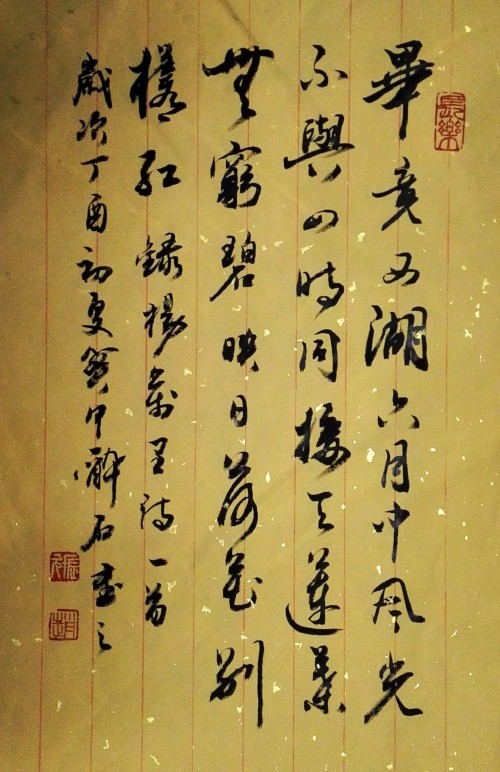 長樂
畢竟西湖六月中風光
不與四時同接天蓮葉
無窮碧映日荷花別
樣紅 錄楊萬里詩一首
歲次丁酉初夏醉石書之